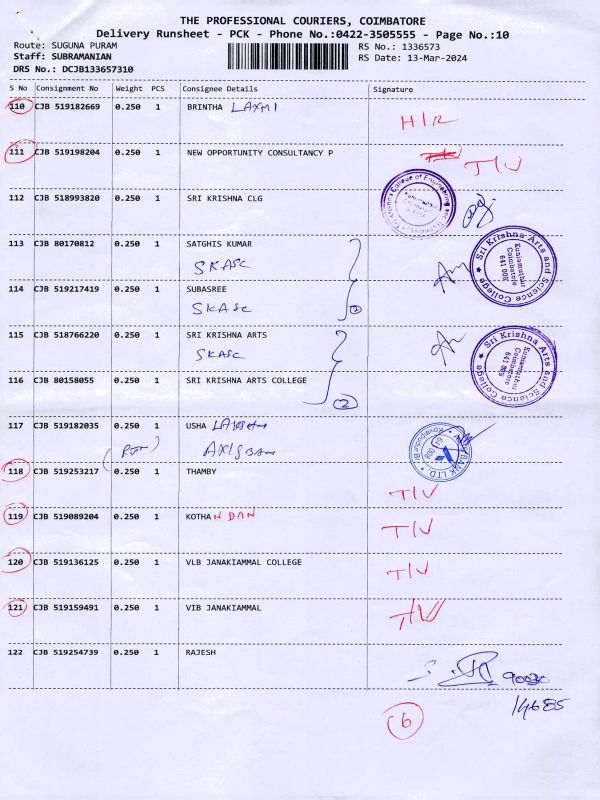 THE PROFESSIONAL COURIERS, COIMBATORE
Delivery Runsheet - PCK - Phone No.:0422-3505555 - Page No.:10
Route: SUGUNA PURAM
RS No.: 1336573
Staff: SUBRAMANIAN
RS Date: 13-Mar-2024
DRS No.: DCJB133657310
S No Consignment No Weight PCS Consignee Details Signature
110 CJB 519182669 0.250 1 BRINTHA LAXMI
H/R
111 CJB 519198204 0.250 1 NEW OPPORTUNITY CONSULTANCY P T/V
112 CJB 518993820 0.250 1 SRI KRISHNA CLG
Sri Krishna College of Engineering and Technology
113 CJB 80170812 0.250 1 SATGHIS KUMAR
SKASC
Sri Krishna Arts and Science College
Kuniamuthur
Coimbatore
641 008
114 CJB 519217419 0.250 1 SUBASREE
SKASC
2
115 CJB 518766220 0.250 1 SRI KRISHNA ARTS
SKASC
Sri Krishna Arts and Science College
Kuniamuthur
Coimbatore
641 008
116 CJB 80158055 0.250 1 SRI KRISHNA ARTS COLLEGE
2
117 CJB 519182035 0.250 1 USHA
BANK LTD
118 CJB 519253217 0.250 1 THAMBY
T/V
119 CJB 519089204 0.250 1 KOTHANDAN
T/V
120 CJB 519136125 0.250 1 VLB JANAKIAMMAL COLLEGE
T/V
121 CJB 519159491 0.250 1 VIB JANAKIAMMAL
T/V
122 CJB 519254739 0.250 1 RAJESH
90030
14685
6